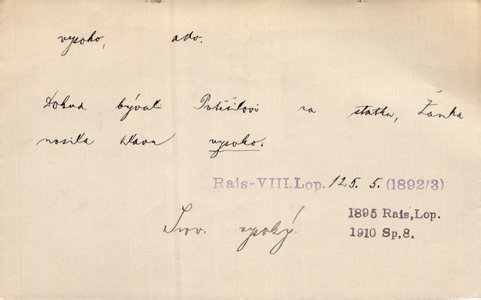 vysoko, adv.
Dokud bývali Potěšilovi na statku, Žanka
nosila hlavu vysoko.
Rais-VIII.Lop. 125. 5. (1892/3)
1895 Rais, Lop.
1910 Sp. 8.
Srov. vysoký.